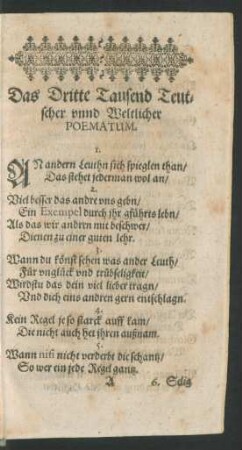 Das Dritte Tausend Teut-
scher vnnd Weltlicher
POEMATUM.
1.
AN andern Leuthn sich spieglen than/
Das stehet jederman wol an/
2.
Viel besser das andre vns gebn/
Ein Exempel durch jhr gführts lebn/
Als das wir andrn mit beschwer/
Dienen zu einer guten lehr.
3.
Wann du könst sehen was ander Leuth/
Für vnglück vnd trübseligkeit/
Wirdstu das dein viel lieber tragn/
Vnd dich eins andren gern entschlagn.
4.
Kein Regel je so starck auff kam/
Die nicht auch het jhren außnam.
5.
Wann nicht verderbt die schantz/
So wer ein jede Regel gantz.
A 6. Selig